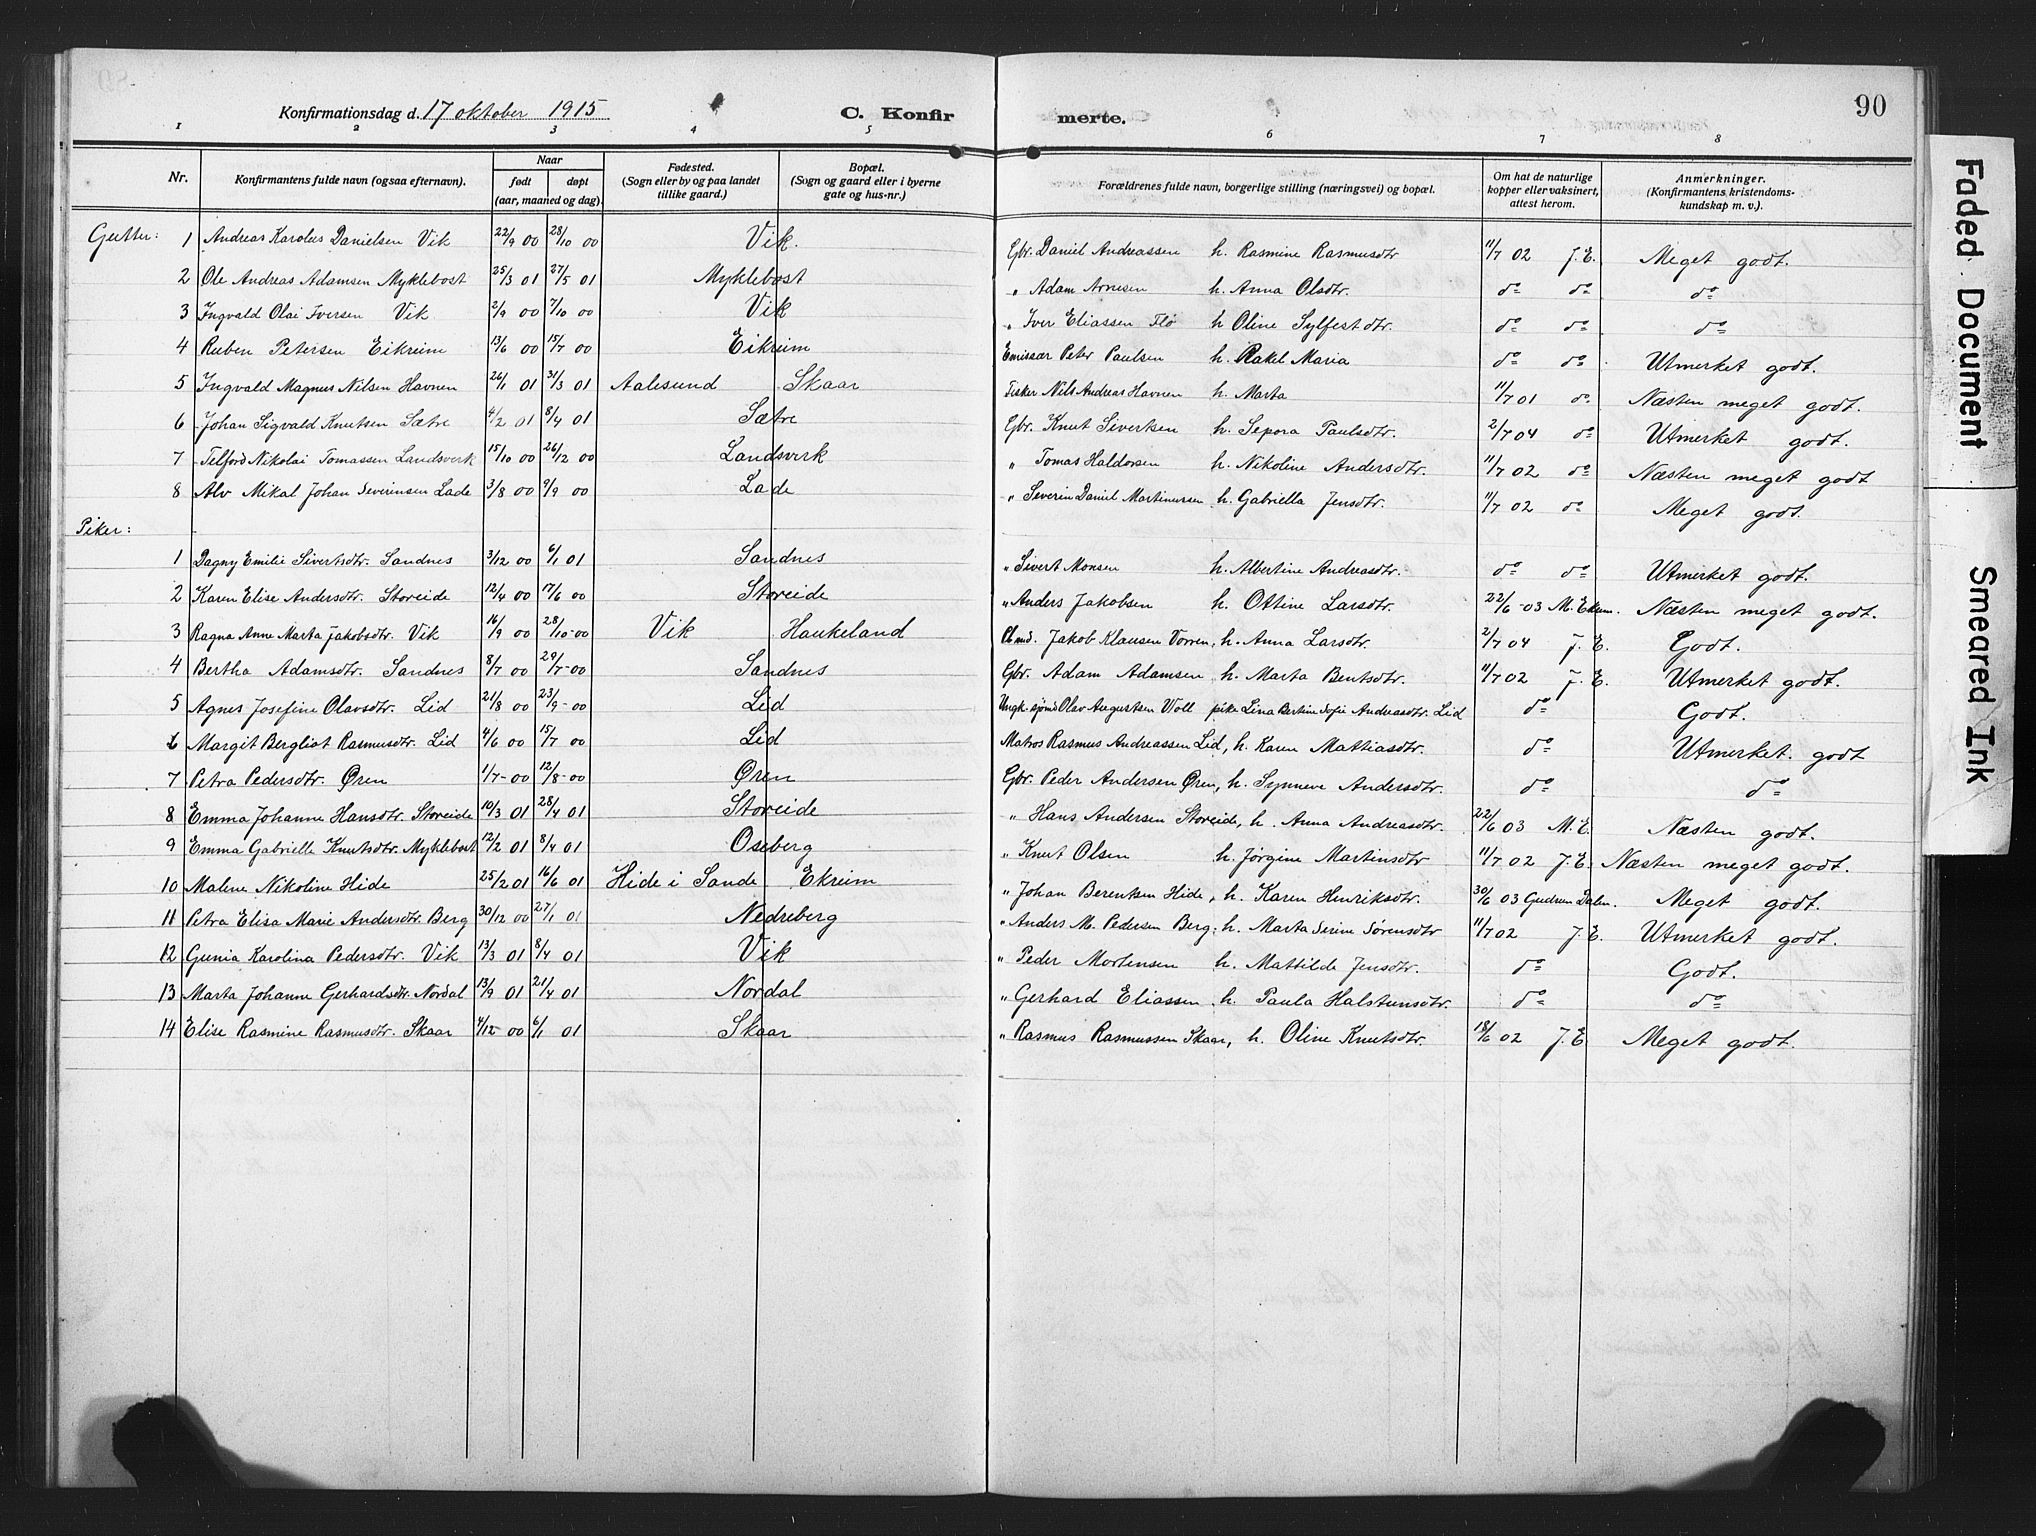 Konfirmationsdag d. 17 oktober 1915 C. Konfirmerte. 90
1 2 3 4 5 6 7 8
Nr. Konfirmantens fulde navn (ogsaa efternavn). Naar født døpt (aar, maaned og dag). Fødested. (Sogn eller by og paa landet tillike gaard.) Bopæl. (Sogn og gaard eller i byerne gate og hus-nr.) Forældrenes fulde navn, borgerlige stilling (næringsvei) og bopæl. Om hat de naturlige kopper eller vaksinert, attest herom. Anmerkninger. (Konfirmantens kristendomskundskap m. v.).
Gutter: 1 Andreas Karolus Danielsen Vik 22/9 00 28/10 00 Vik. Gbr. Daniel Andreassen h. Rasmine Rasmusdtr 11/7 02 J. E. Meget godt.
2 Ole Andreas Adamsen Myklebost 25/3 01 27/5 01 Myklebost " Adam Arnesen h. Anna Olsdtr. do do do
3 Ingvald Olai Iversen Vik 2/9 00 7/10 00 Vik " Iver Eliassen Flø h Oline Sylfestdtr. do do do
4 Ruben Petersen Eikreim 13/6 00 15/7 00 Eikreim Emissær Peter Paulsen h. Rakel Maria do do Utmerket godt.
5 Ingvald Magnus Nilsen Havnen 26/1 01 31/3 01 Aalesund Skaar Fisker Nils Andreas Havnen h. Marta 11/7 01 do. Næsten meget godt.
6 Johan Sigvald Knutsen Sætre 4/2 01 8/4 01 Sætre Gbr. Knut Sivertsen h. Sepora Paulsdtr. 2/7 04 do Utmerket godt.
7 Telford Nikolai Tomassen Landsverk 15/10 00 26/12 00 Landsverk " Tomas Haldorsen h. Nikoline Andersdtr. 11/7 02 do Næsten meget godt
8 Alv Mikal Johan Severinsen Lade 3/8 00 9/9 00 Lade " Severin Daniel Martinussen h. Gabriella Jensdtr. 11/7 02 do Meget godt.
Piker:
1 Dagny Emilie Sivertsdtr. Sandnes 3/12 00 6/1 01 Sandnes " Sivert Monsen h. Albertine Andreasdtr. do do Utmerket godt.
2 Karen Elise Andersdtr. Storeide 12/4 00 17/6 00 Storeide " Anders Jakobsen h. Ottine Larsdtr. 22/6 -03 M. Ekum. Næsten meget godt.
3 Ragna Anne Marta Jakobsdtr. Vik 16/9 00 28/10-00 Vik Haukeland Jakob Klausen Vorren, h. Anna Larsdtr. 2/7 04 J. E. Godt.
4 Bertha Adamsdtr. Sandnes 8/7 00 29/7-00 Sandnes Gbr. Adam Adamsen h. Marta Bentsdtr. 11/7 02 J. E. Utmerket godt.
5 Agnes Josefine Olavsdtr. Lid 21/8 00 23/9-00 Lid Ungk. sjømd Olav Augustsen Voll pike Lina Bertine Sofie Andreasdtr. Lid do Godt.
6 Margit Bergliot Rasmusdtr. Lid 4/6 00 15/7 00 Lid Matros Rasmus Andreassen Lid, h. Karen Mattiasdtr. do Utmerket. godt
7 Petra Pedersdtr. Øren 1/7-00 12/8-00 Øren Gbr. Peder Andersen Øren, h. Synneve Andersdtr. do do
8 Emma Johanne Hansdtr. Storeide 10/3 01 28/4 01 Storeide " Hans Andersen Storeide, h. Anna Andreasdtr. 22/6 03 M. E. Næsten godt.
9 Emma Gabrielle Knutsdtr. Myklebost 12/2 01 8/4 01 Oseberg " Knut Olsen h. Jørgine Martinsdtr 11/7 02 J. E. Næsten meget godt.
10 Malene Nikoline Hide 25/2 01 16/6 01 Hide i Sande Ekreim " Johan Berentsen Hide, h. Karen Henriksdtr. 30/6 03 Gudrun Dalen. Meget godt.
11 Petra Elisa Marie Andersdtr. Berg 30/12 00 27/1 01 Nedreberg " Anders M. Pedersen Berg, h. Marta Serine Sørensdtr 11/7 02 J. E. Utmerket godt.
12 Gunia Karolina Pedersdtr. Vik 13/3 01 8/4 01 Vik " Peder Mortensen h. Mattilde Jensdtr. do Godt.
13 Marta Johanne Gerhardsdtr. Nordal 13/9 01 21/4 01 Nordal " Gerhard Eliassen, h. Paula Halstensdtr. do do
14 Elise Rasmine Rasmusdtr. Skaar 4/12-00 6/1 01 Skaar " Rasmus Rasmussen Skaar, h. Oline Knutsdtr. 18/6 02 J. E Meget godt.
Faded Document
Smeared Ink